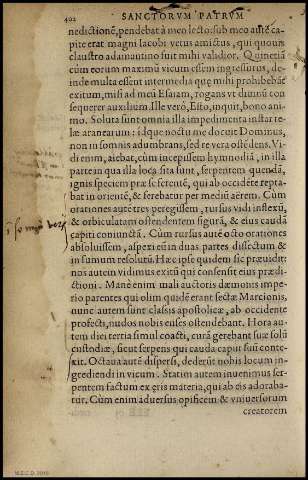 402 SANCTORVM PATRVM
nedictionē, pendebat à meo lecto: sub meo autē ca-
pite erat magni Iacobi vetus amictus, qui quouis
claustro adamantino fuit mihi validior. Quinetiā
cùm eorum maximū vicum essem ingressurus, de-
inde multa essent intermedia quę mihi prohibebāt
exitum, misi ad meū Esaiam, rogans vt diuinū con
sequerer auxilium. Ille verò, Esto, inquit, bono ani-
mo. Soluta sunt omnia illa impedimenta instar te-
læ aranearum: idque noctu me docuit Dominus,
non in somnis adumbrans, sed re vera ostēdens. Vi-
di enim, aiebat, cùm incepissem hymnodiā, in illa
parte in qua illa loca sita sunt, serpentem quendā,
ignis speciem præ se ferentē, qui ab occidēte repta-
bat in orientē, & ferebatur per mediū aërem. Cùm
orationes autē tres peregissem, rursus vidi inflexū,
& orbiculatam ostendentem figurā, & eius caudā
capiti coniunctā. Cùm rursus autē octo orationes
absoluissem, aspexi eū in duas partes dissectum &
in fumum resolutū. Hæc ipse quidem sic præuidit:
nos autem vidimus exitū qui consensit eius prædi-
ctioni. Manè enim mali auctoris dæmonis impe-
rio parentes qui olim quidē erant sectæ Marcionis,
nunc autem sunt classis apostolicæ, ab occidente
profecti, nudos nobis enses ostendebant. Hora au-
tem diei tertia simul coacti, curā gerebant suæ solū
custodiæ, sicut serpens qui cauda caput sui conte-
xit. Octaua autē dispersi, dederūt nobis locum in-
grediendi in vicum. Statim autem inuenimus ser-
pentem factum ex æris materia, qui ab eis adoraba-
tur. Cùm enim aduersus opificem & vniuersorum
creatorem